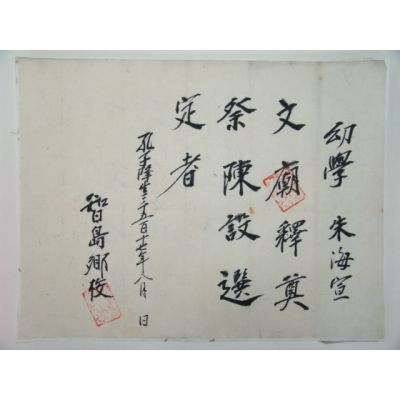 幼學 朱海宣
文廟釋奠
祭陳設選
定者
孔子降生二千五百十七年八月 日
智島鄕校